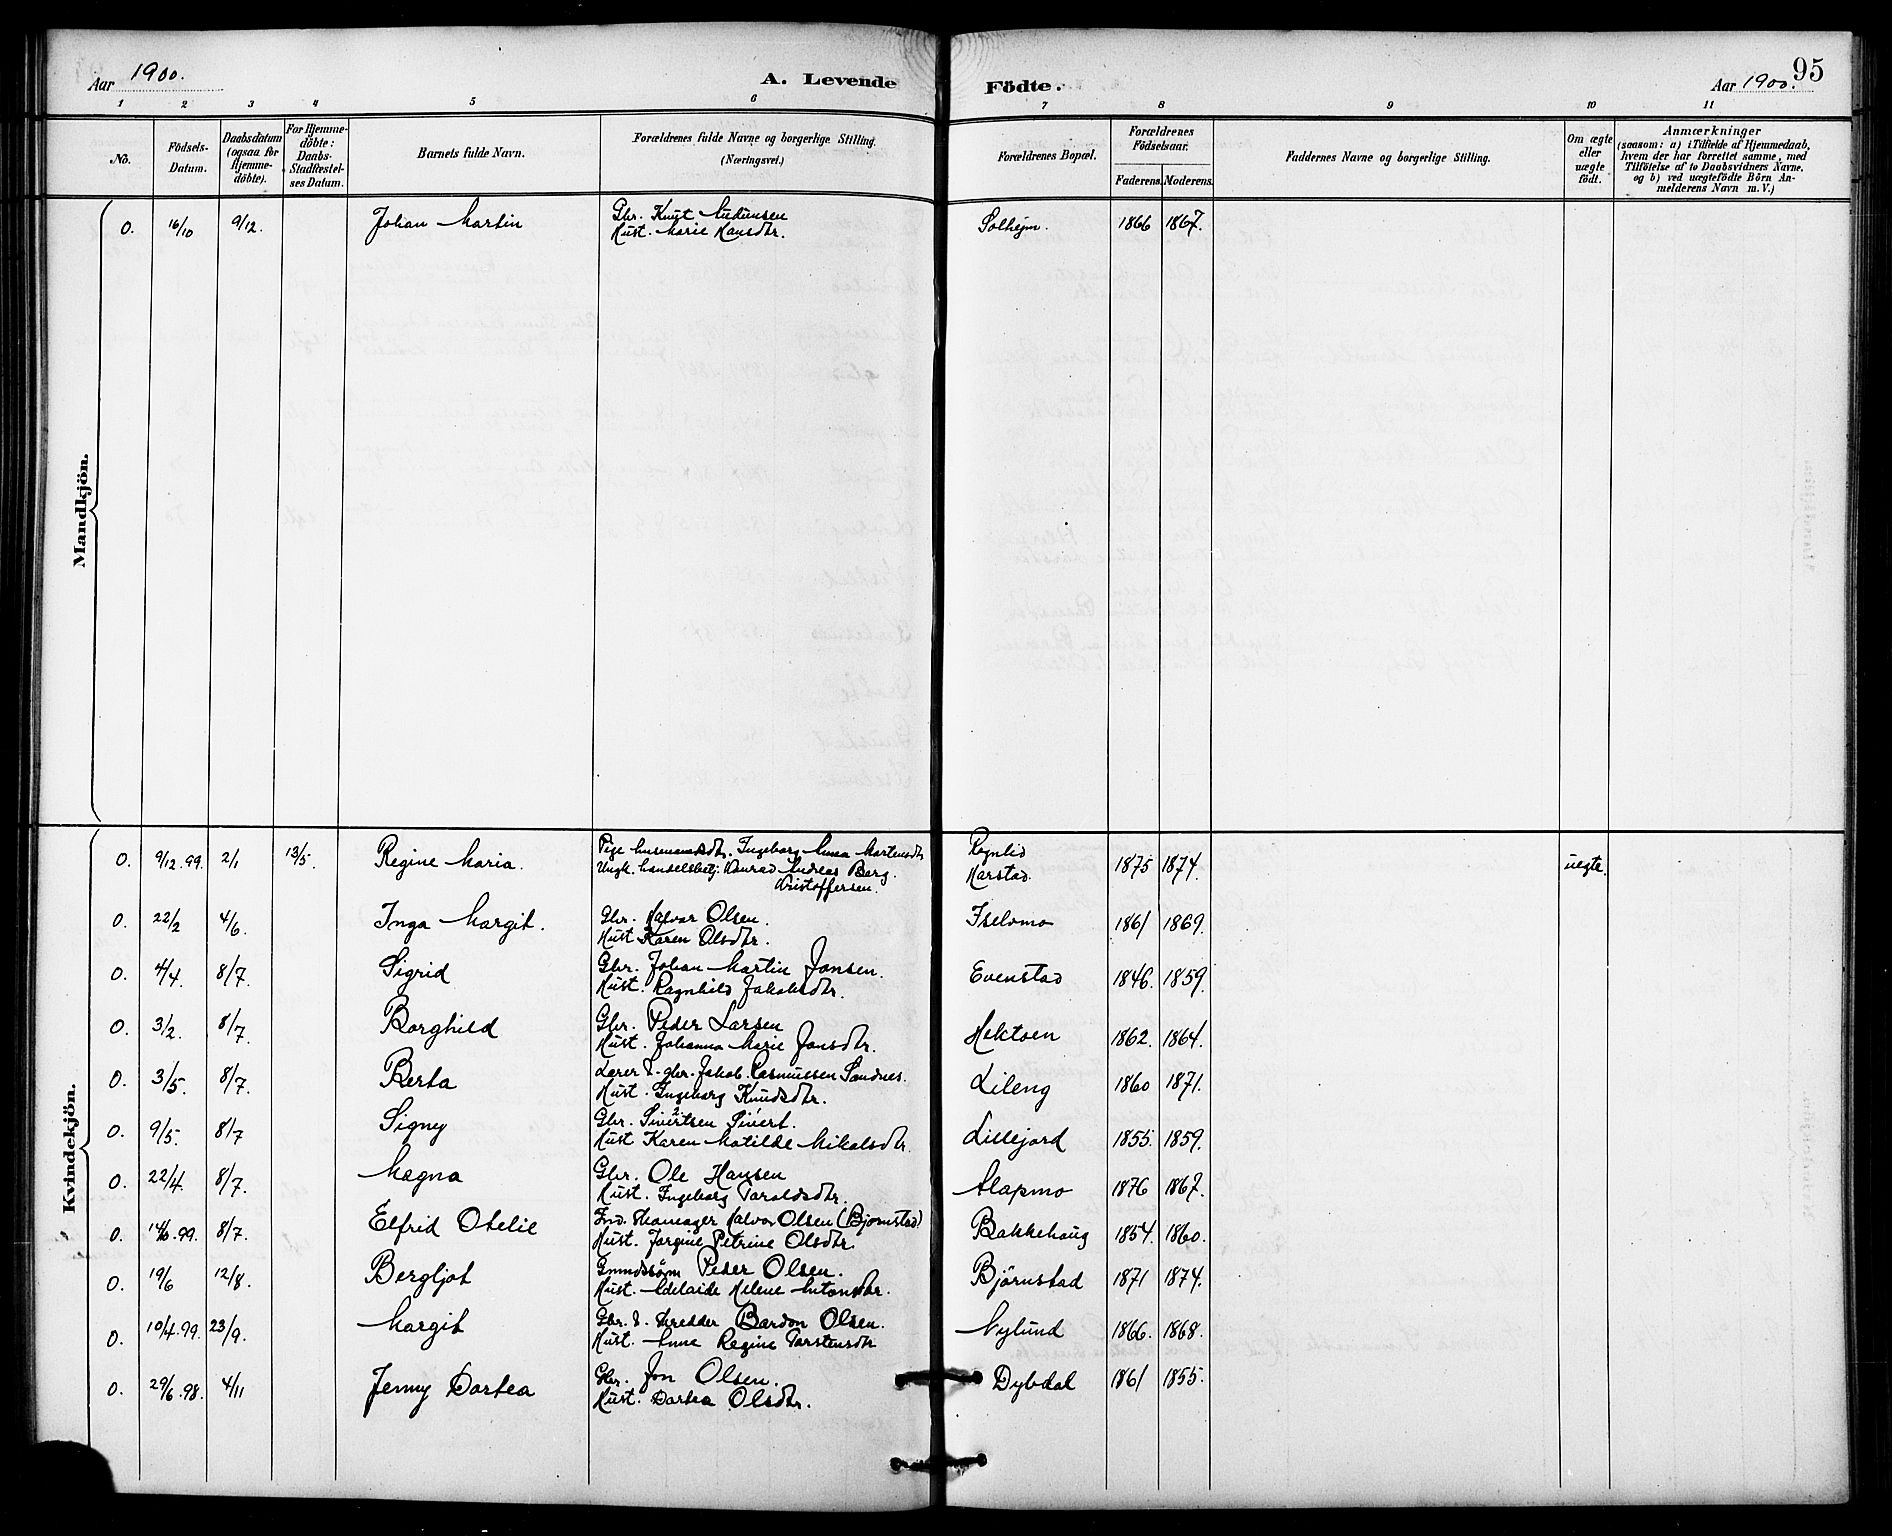 Aar 1900. A. Levende Födte. Aar 1900. 95
1 2 3 4 5 6 7 8 9 10 11
No. Födsels-Datum. Daabsdatum (ogsaa for Hjemme-döbte). For Hjemme-döbte: Daabs-Stadfæstel-ses Datum. Barnets fulde Navn. Forældrenes fulde Navne og borgerlige Stilling. (Næringsvei.) Forældrenes Bopæl. Forældrenes Födselsaar. Faderens. Moderens. Faddernes Navne og borgerlige Stilling. Om ægte eller uægte födt. Anmærkninger (saasom: a) i Tilfælde af Hjemmedaab, hvem der har forrettet samme, med Tilföielse af to Daabsvidners Navne, og b) ved uægtefödte Börn An-melderens Navn m.V.)
Mandkjön.
0. 16/10 9/12. Johan Martin Gbr. Knut Audunsen Solhejm. 1866 1867.
Hust. Marie Hansdtr.
Kvindekjön.
0. 9/12.99. 2/1 13/5. Regine Maria. Pige husmandsdtr. Ingeborg Anna Mortensdtr 1875 1874. uegte.
Ungk. handelsbetj. Konrad Andreas Berg. Harstad.
Kristoffersen.
0. 22/2 4/6. Inga Margit. Gbr. Halvor Olsen. Iselvmo 1861 1869.
Hust Karen Olsdtr.
0. 4/4. 8/7. Sigrid Gbr. Johan Martin Jonsen. Evenstad 1846. 1859.
Hust. Ragnhild Jakobsdtr.
0. 3/2. 8/7. Borghild Gbr. Peder Larsen Hektoen 1862. 1864.
Hust. Johanna Marie Jonsdtr.
0. 3/5. 8/7. Berta Lærer & gbr. Jakob Rasmussen Sandnes. Lileng 1860 1871.
Hust. Ingeborg Knudsdtr.
0. 9/5. 8/7 Signy Gbr. Sivertsen Sivert. Lillejord 1855. 1859.
Hust Karen Matilde Mikalsdtr.
0. 22/4. 8/7. Magna Gbr. Ole Hansen Alapmo 1876 1867.
Hust. Ingeborg Taraldsdtr.
0. 14/6.99. 8/7. Elfrid Otelie Ind. Skomager Halvor Olsen (Bjørnstad) Bakkehaug 1854. 1860.
Hust. Jørgine Petrine Olsdtr.
0. 19/6 12/8. Bergljot Peder Olsen. Björnstad 1871 1874.
Hust. Adelaide Helene Antonsdtr.
0. 10/4.99. 23/9. Margit Gbr. & skredder Bardon Olsen. Nylund 1866. 1868.
Hust. Anne Regine Torstensdtr
0. 29/6.98. 4/11 Jenny Dortea Gbr. Jon Olsen. Dybdal 1861 1855.
Hust. Dortea Olsdtr.